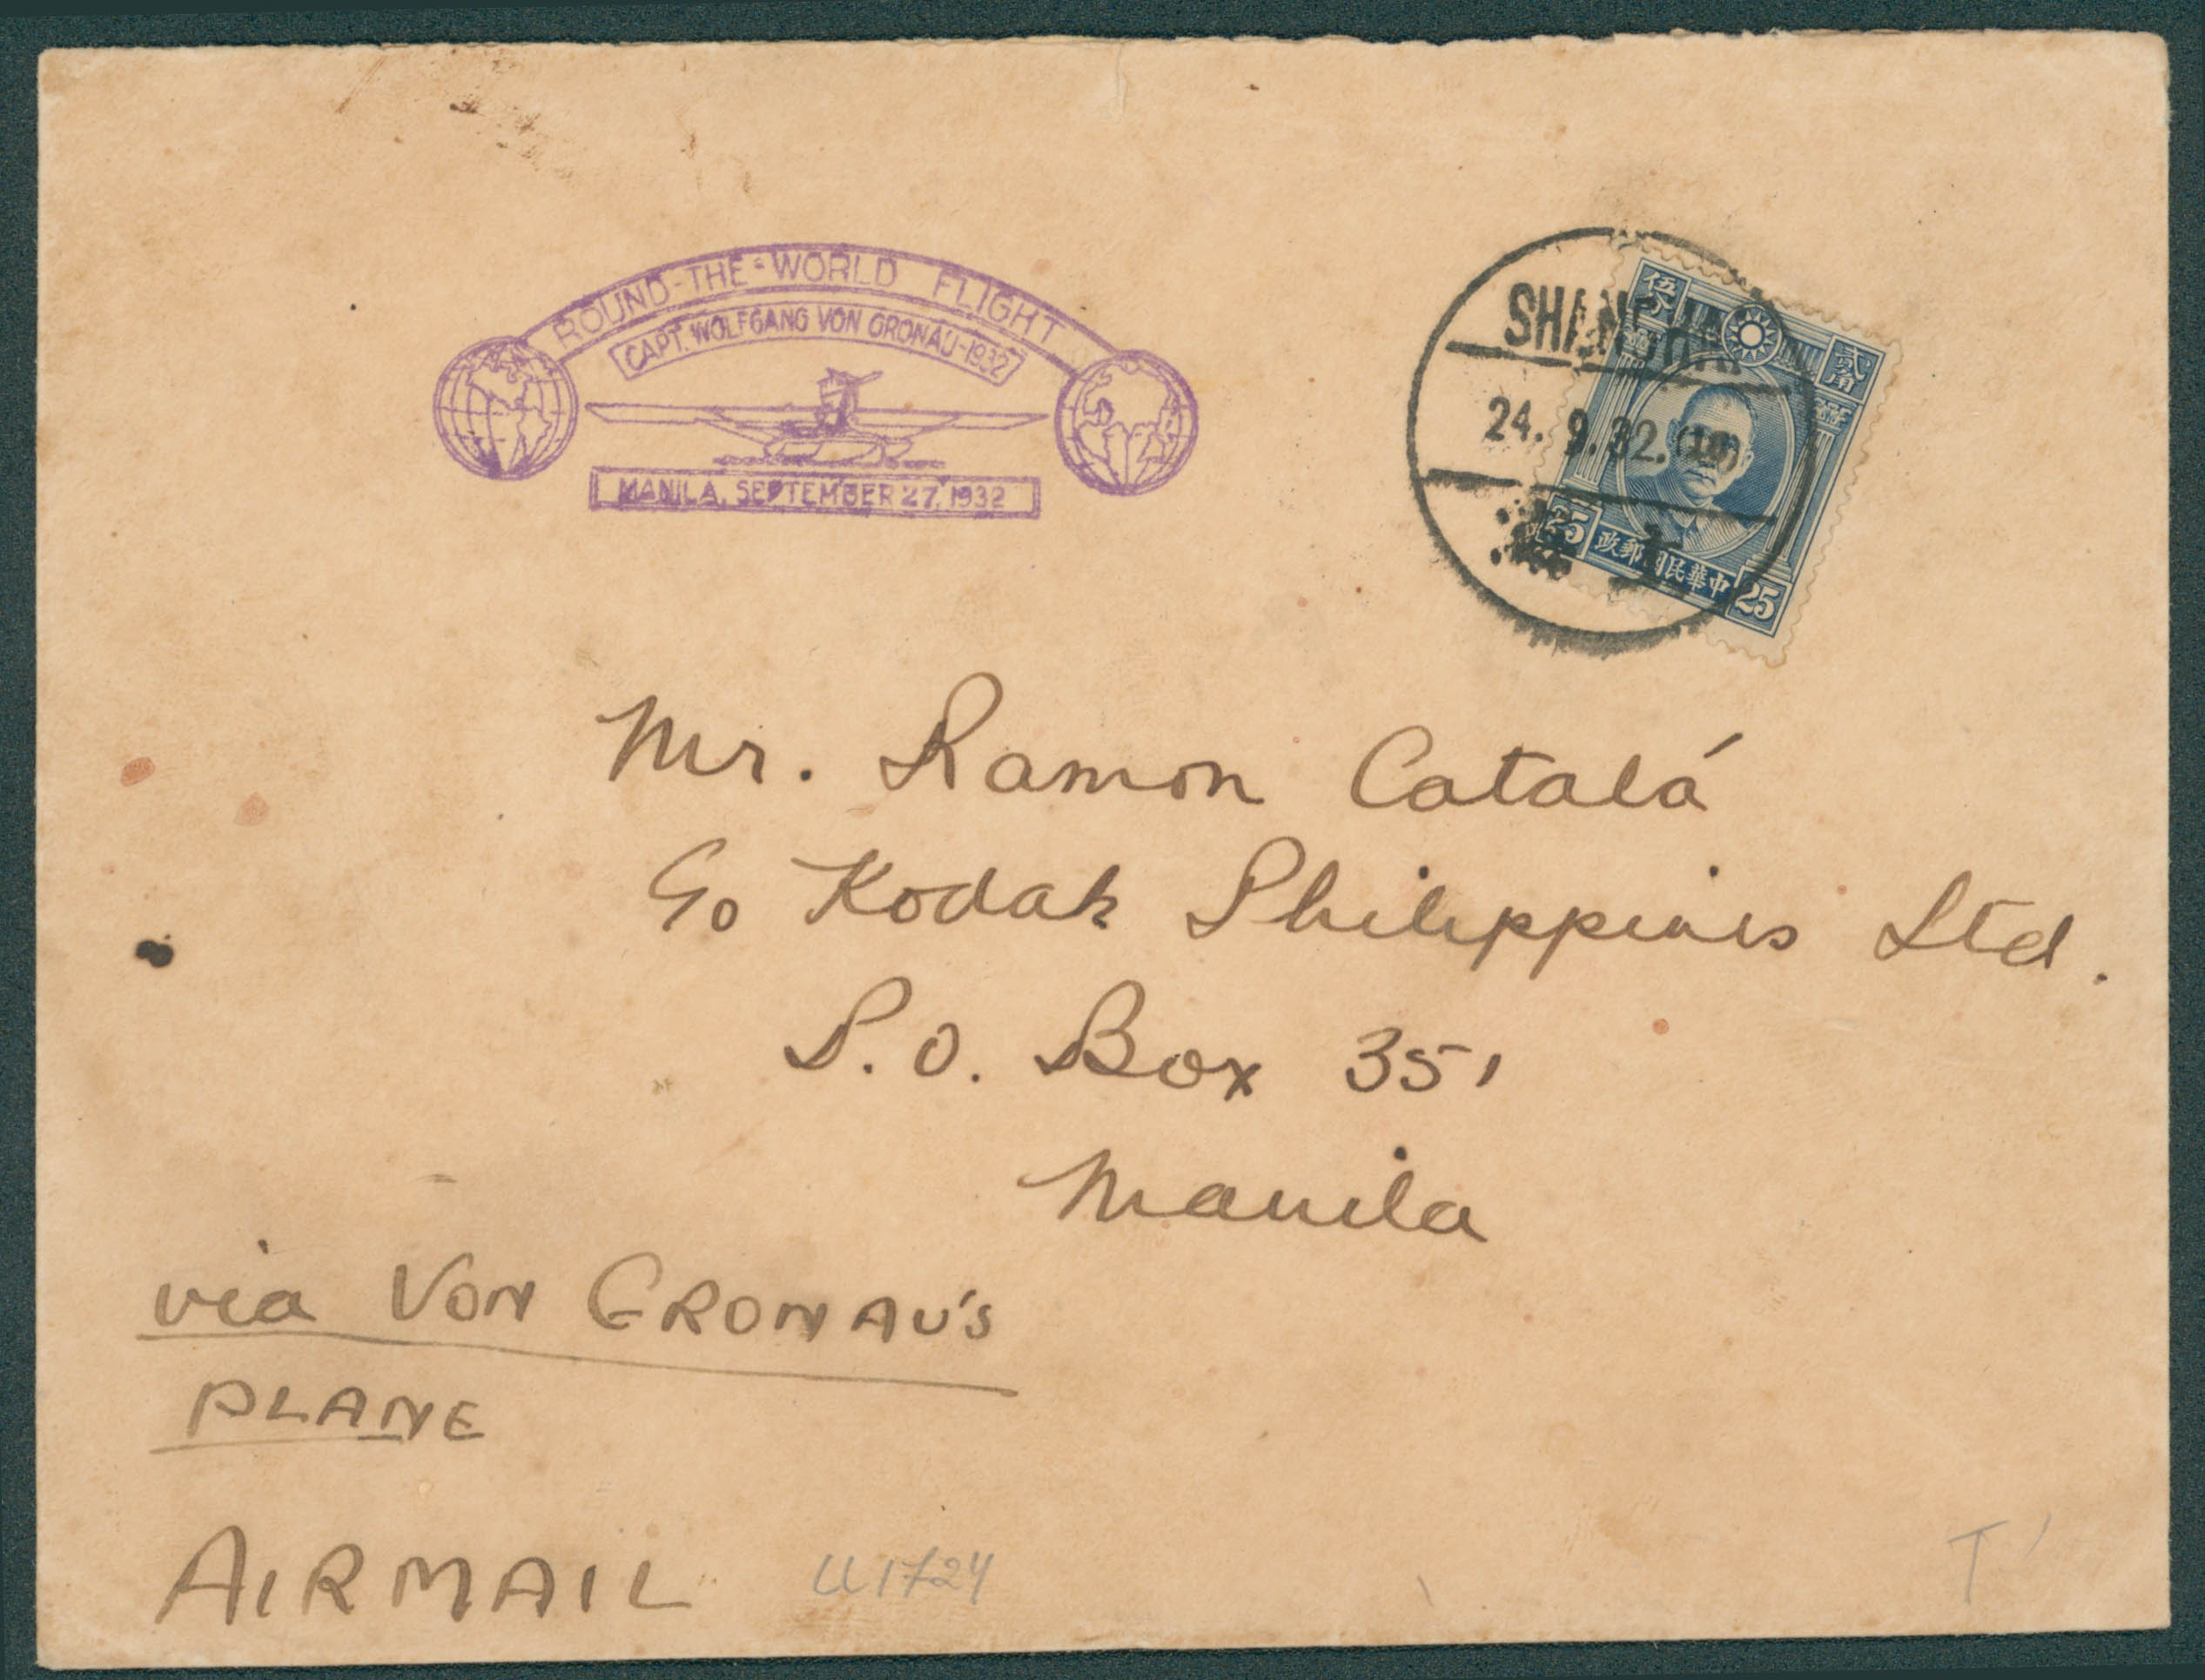 ROUND-THE-WORLD FLIGHT
CAPT. WOLFGANG VON GRONAU-1932
MANILA, SEPTEMBER 27, 1932
SHANGHAI
24. 9. 32. (18)
伍分
貳角
25
25
政郵國民華中
Mr. Ramon Catalá
c/o Kodak Philippines Ltd.
P.O. Box 351
Manila
via VON GRONAU'S
PLANE
AIRMAIL
U1724
T'